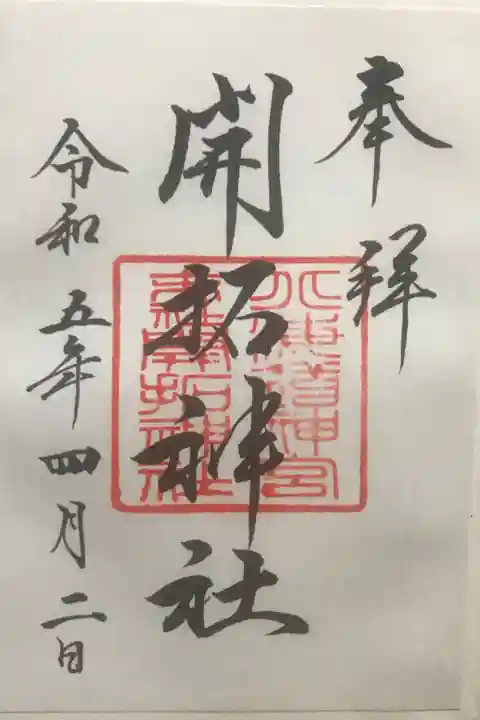 奉拝
開拓神社
北海道神宮
末社開拓神社
令和五年四月二日